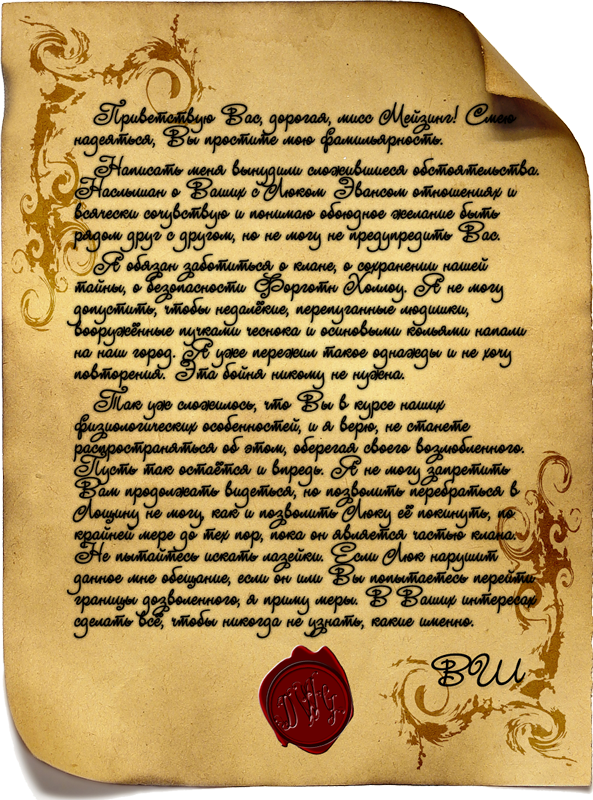 Приветствую Вас, дорогая, мисс Мейзинг! Смею
надеяться, Вы простите мою фамильярность.
Написать меня вынудили сложившиеся обстоятельства.
Наслышан о Ваших с Люком Эвансом отношениях и
всячески сочувствую и понимаю обоюдное желание быть
рядом друг с другом, но не могу не предупредить Вас.
Я обязан заботиться о клане, о сохранении нашей
тайны, о безопасности Форготн Холлоу. Я не могу
допустить, чтобы недалёкие, перепуганные людишки,
вооружённые пучками чеснока и осиновыми кольями напали
на наш город. Я уже пережил такое однажды и не хочу
повторения. Эта бойня никому не нужна.
Так уж сложилось, что Вы в курсе наших
физиологических особенностей, и я верю, не станете
распространяться об этом, оберегая своего возлюбленного.
Пусть так остаётся и впредь. Я не могу запретить
Вам продолжать видеться, но позволить перебраться в
Лощину не могу, как и позволить Люку её покинуть, по
крайней мере до тех пор, пока он является частью клана.
Не пытайтесь искать лазейки. Если Люк нарушит
данное мне обещание, если он или Вы попытаетесь перейти
границы дозволенного, я приму меры. В Ваших интересах
сделать всё, чтобы никогда не узнать, какие именно.
ВШ